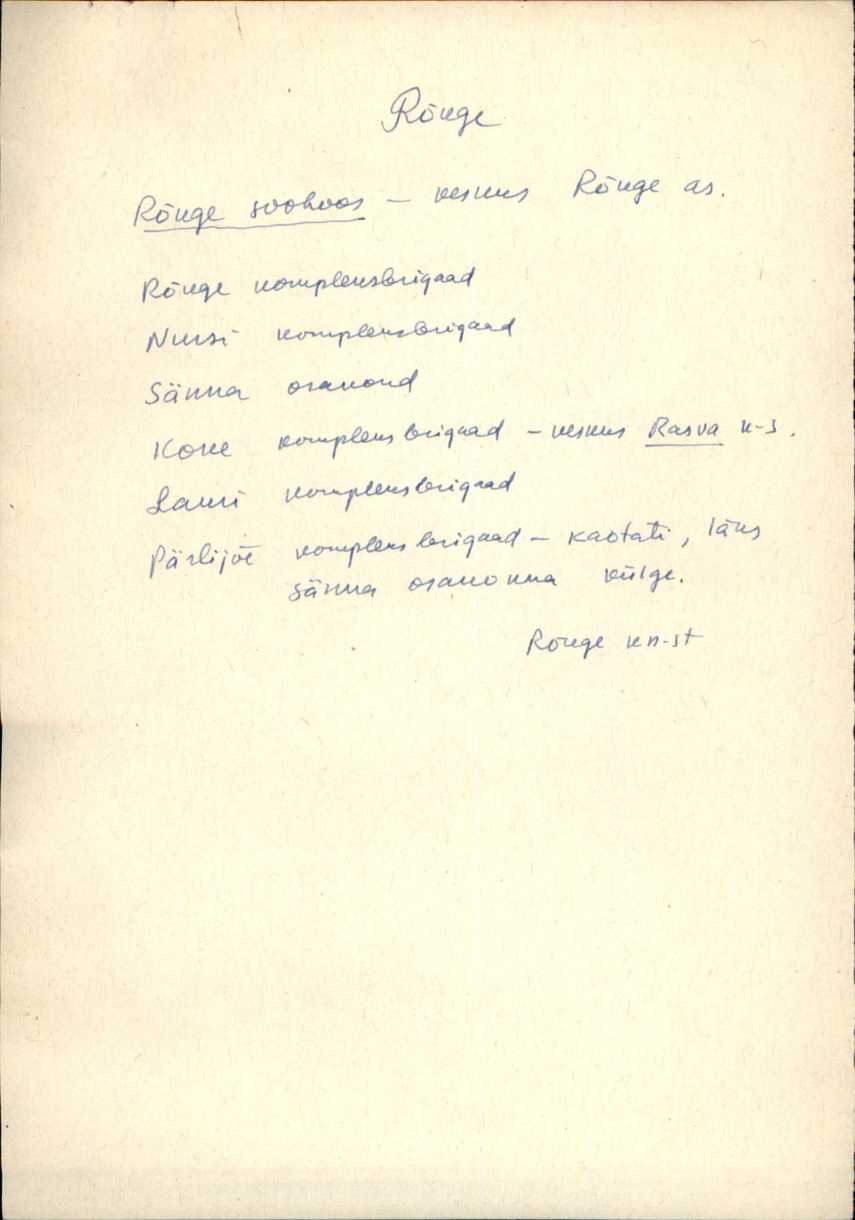 Rõuge
Rõuge sovhoos – keskus Rõuge as.
Rõuge kompleksbrigaad
Nursi kompleksbrigaad
Sänna osakond
Kõue kompleksbrigaad – keskus Rasva k-s.
Lauri kompleksbrigaad
Pärlijõe kompleksbrigaad – kaotati, läks
Sänna osakonna külge.
Rõuge kn-st